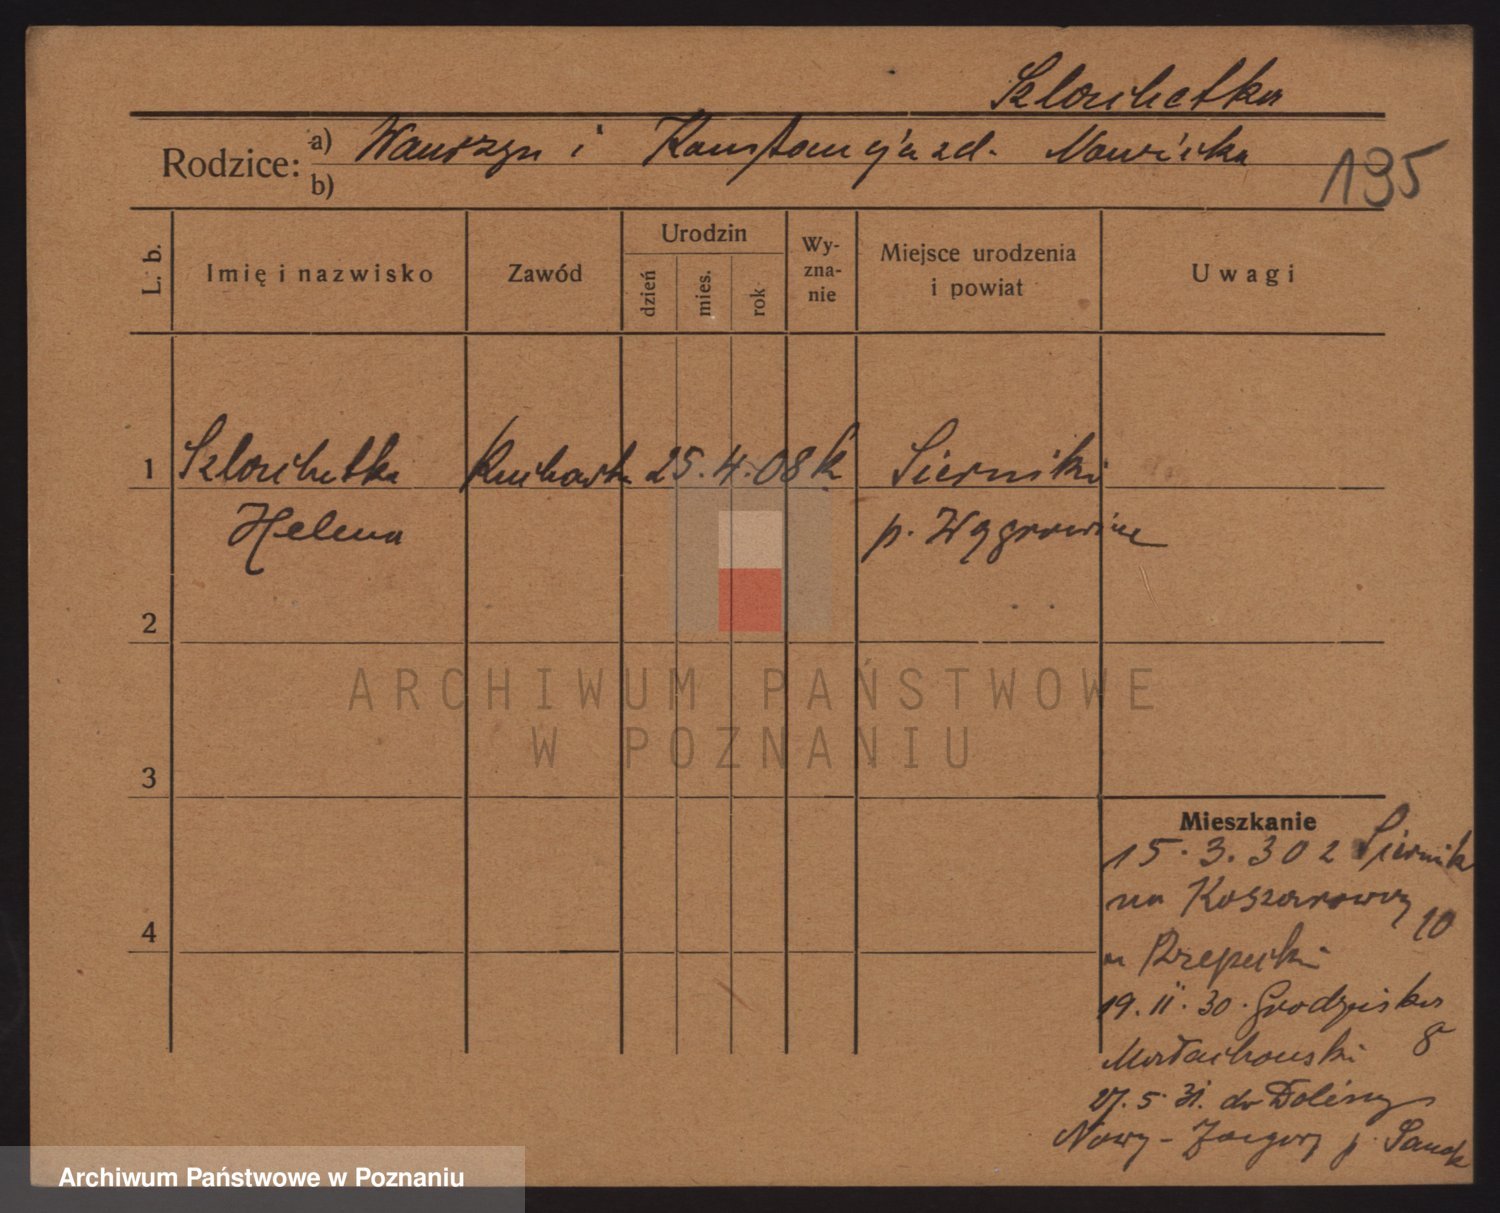 Szlouchetka
Rodzice: a) Wawrzyn i Konstancja zd. Nowicka
b)
195
L. b.
Imię i nazwisko
Zawód
Urodzin
dzień
mies.
rok
Wy-
zna-
nie
Miejsce urodzenia
i powiat
Uwagi
1 Szlouchetka Kucharka 25. 4. 08 k Sierniki
Helena p. Wągrowiec
2
ARCHIWUM PAŃSTWOWE
W POZNANIU
3
Mieszkanie
15. 3. 30 z Siernik
na Koszarowy 10
u Rzepecki
19. II. 30. Grodziska
Małachowski 8
27. 5. 31. do Doliny
Nowy-Zagórz p. Sanok
4
Archiwum Państwowe w Poznaniu